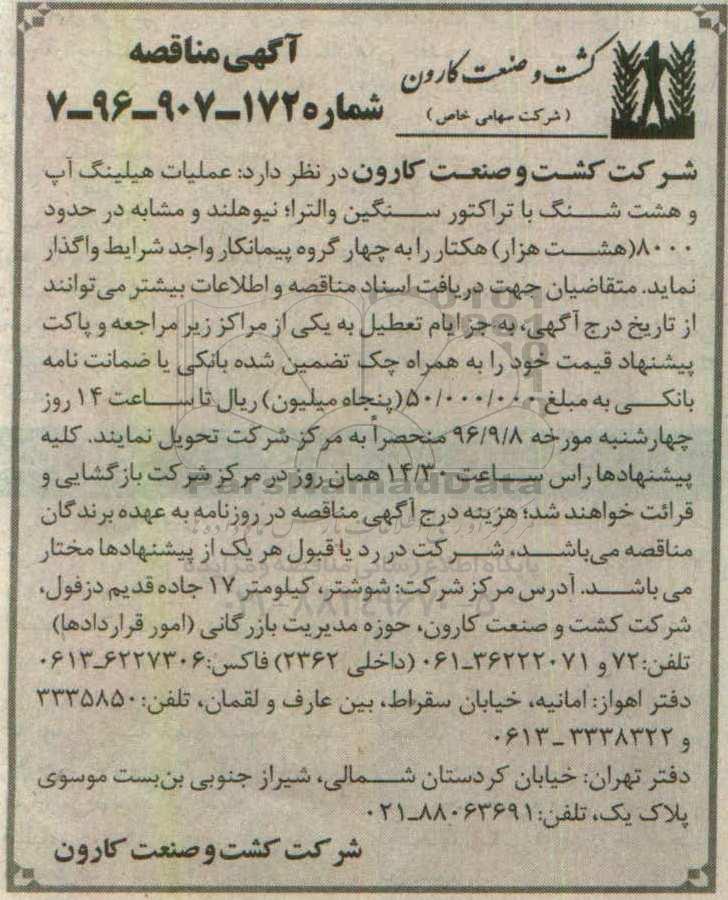 آگهی مناقصه
شماره ۱۷۲-۹۰۷-۹۶-۷
کشت و صنعت کارون
(شرکت سهامی خاص)
شرکت کشت و صنعت کارون در نظر دارد: عملیات هیلینگ آپ
و هشت شنگ با تراکتور سنگین والترا؛ نیوهلند و مشابه در حدود
۸۰۰۰(هشت هزار) هکتار را به چهار گروه پیمانکار واجد شرایط واگذار
نماید. متقاضیان جهت دریافت اسناد مناقصه و اطلاعات بیشتر می‌توانند
از تاریخ درج آگهی، به جز ایام تعطیل به یکی از مراکز زیر مراجعه و پاکت
پیشنهاد قیمت خود را به همراه چک تضمین شده بانکی یا ضمانت نامه
بانکی به مبلغ ۵۰/۰۰۰/۰۰۰(پنجاه میلیون) ریال تا ساعت ۱۴ روز
چهارشنبه مورخه ۹۶/۹/۸ منحصراً به مرکز شرکت تحویل نمایند. کلیه
پیشنهادها راس ساعت ۱۴/۳۰ همان روز در مرکز شرکت بازگشایی و
قرائت خواهند شد؛ هزینه درج آگهی مناقصه در روزنامه به عهده برندگان
مناقصه می‌باشد، شرکت در رد یا قبول هر یک از پیشنهادها مختار
می باشد. آدرس مرکز شرکت: شوشتر، کیلومتر ۱۷ جاده قدیم دزفول،
شرکت کشت و صنعت کارون، حوزه مدیریت بازرگانی (امور قراردادها)
تلفن: ۷۲ و ۳۶۲۲۲۰۷۱-۰۶۱ (داخلی ۲۳۶۲) فاکس: ۶۲۲۷۳۰۶-۰۶۱۳
دفتر اهواز: امانیه، خیابان سقراط، بین عارف و لقمان، تلفن: ۳۳۳۵۸۵۰
و ۳۳۳۸۳۲۲-۰۶۱۳
دفتر تهران: خیابان کردستان شمالی، شیراز جنوبی بن‌بست موسوی
پلاک یک، تلفن: ۸۸۰۶۳۶۹۱-۰۲۱
شرکت کشت و صنعت کارون
ParsNamadData
پایگاه اطلاع رسانی مناقصه و مزایده